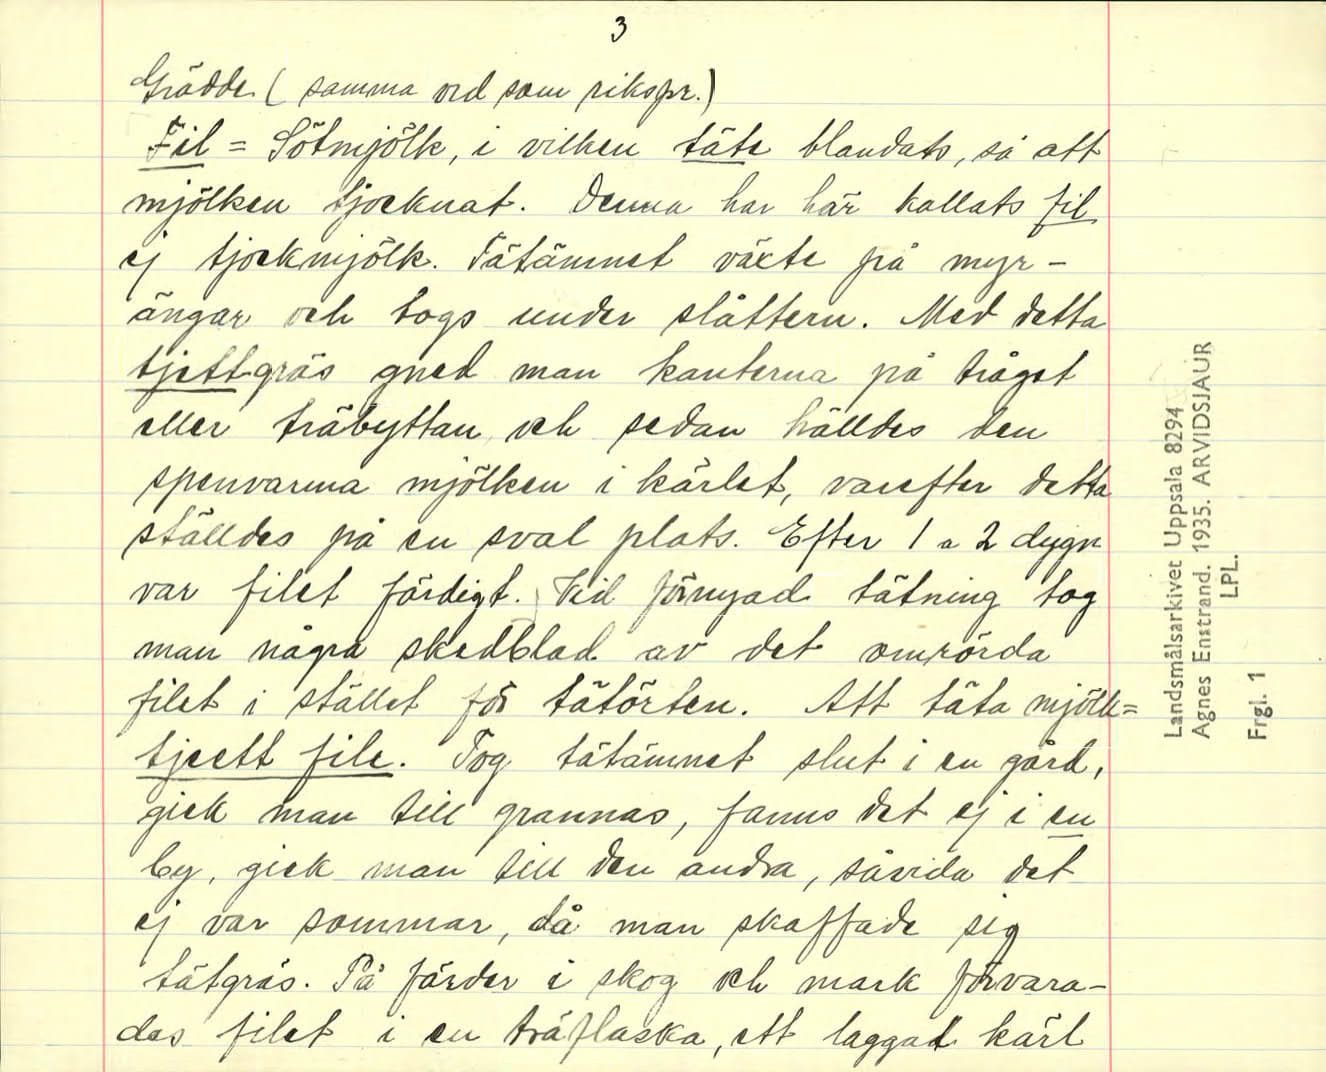 3
Grädde (samma ord som rikspr.)
Fil = Sötmjölk, i vilken täte blandats, så att
mjölken tjocknat. Denna har här kallats fil
ej tjockmjölk. Tätämnet växte på myr-
ängar och togs under slåttern. Med detta
tjettgräs gned man kanterna på tråget
eller träbyttan och sedan hälldes den
spenvarma mjölken i kärlet, varefter detta
ställdes på en sval plats. Efter 1 a 2 dygn
var filet färdigt. Vid förnyad tätning tog
man några skedblad av det omrörda
filet i stället för tätörten. Att täta mjölk=
tjeett file. Tog tätämnet slut i en gård,
gick man till grannas, fanns det ej i en
by, gick man till den andra, såvida det
ej var sommar, då man skaffade sig
tätgräs. På färder i skog och mark förvara-
des filet i en träflaska, ett laggat kärl
Landsmålsarkivet Uppsala 8294
Agnes Enstrand. 1935. ARVIDSJAUR
LPL.
Frgl. 1